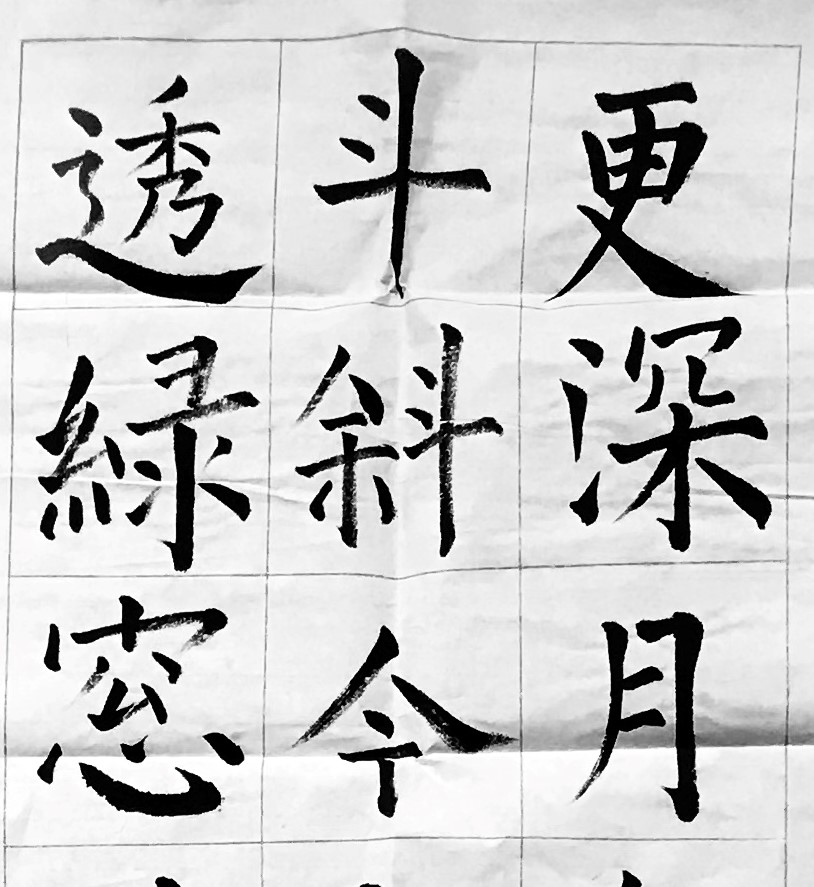 更深月
斗斜今
透緑窓